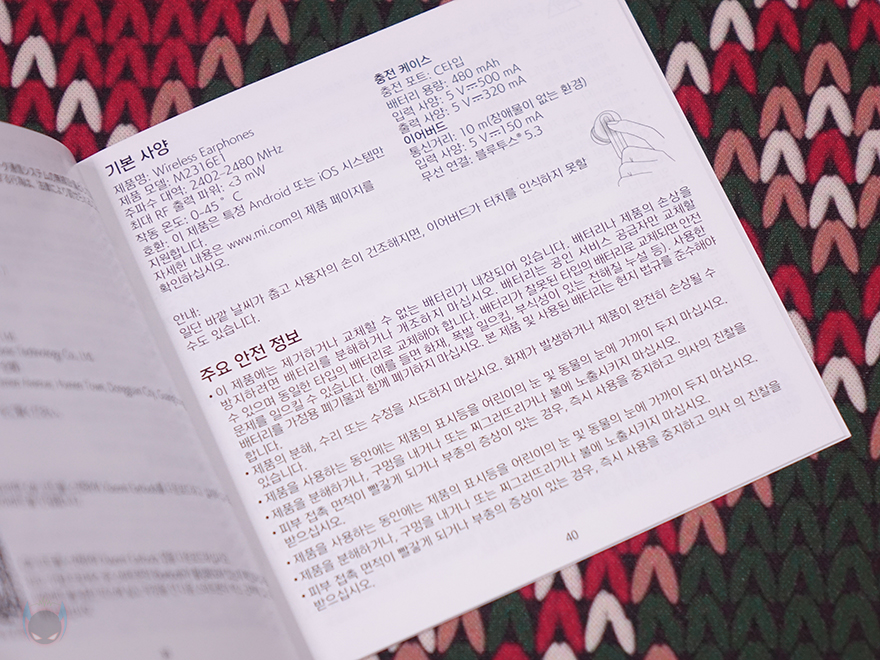 기본 사양
제품명: Wireless Earphones
제품 모델: M2316E1
주파수 대역: 2402-2480 MHz
최대 RF 출력 파워: <3 mW
작동 온도: 0-45 ° C
호환: 이 제품은 특정 Android 또는 iOS 시스템만
지원합니다.
자세한 내용은 www.mi.com의 제품 페이지를
확인하십시오.
충전 케이스
충전 포트: C타입
배터리 용량: 480 mAh
입력 사양: 5 V⎓500 mA
출력 사양: 5 V⎓320 mA
이어버드
통신거리: 10 m(장애물이 없는 환경)
입력 사양: 5 V⎓150 mA
무선 연결: 블루투스® 5.3
안내:
일단 바깥 날씨가 춥고 사용자의 손이 건조해지면, 이어버드가 터치를 인식하지 못할
수도 있습니다.
주요 안전 정보
• 이 제품에는 제거하거나 교체할 수 없는 배터리가 내장되어 있습니다. 배터리나 제품의 손상을
방지하려면 배터리를 분해하거나 개조하지 마십시오. 배터리는 공인 서비스 공급자만 교체할
수 있으며 동일한 타입의 배터리로 교체해야 합니다. 배터리가 잘못된 타입의 배터리로 교체되면 안전
문제를 일으킬 수 있습니다. (예를 들면 화재, 폭발 일으킴, 부식성이 있는 전해질 누설 등). 사용한
배터리를 가정용 폐기물과 함께 폐기하지 마십시오. 본 제품 및 사용된 배터리는 현지 법규를 준수해야
합니다.
• 제품의 분해, 수리 또는 수정을 시도하지 마십시오. 화재가 발생하거나 제품이 완전히 손상될 수
있습니다.
• 제품을 사용하는 동안에는 제품의 표시등을 어린이의 눈 및 동물의 눈에 가까이 두지 마십시오.
• 제품을 분해하거나, 구멍을 내거나 또는 찌그러뜨리거나 불에 노출시키지 마십시오.
• 피부 접촉 면적이 빨갛게 되거나 부종의 증상이 있는 경우, 즉시 사용을 중지하고 의사의 진찰을
받으십시오.
• 제품을 사용하는 동안에는 제품의 표시등을 어린이의 눈 및 동물의 눈에 가까이 두지 마십시오.
• 제품을 분해하거나, 구멍을 내거나 또는 찌그러뜨리거나 불에 노출시키지 마십시오.
• 피부 접촉 면적이 빨갛게 되거나 부종의 증상이 있는 경우, 즉시 사용을 중지하고 의사 의 진찰을
받으십시오.
40